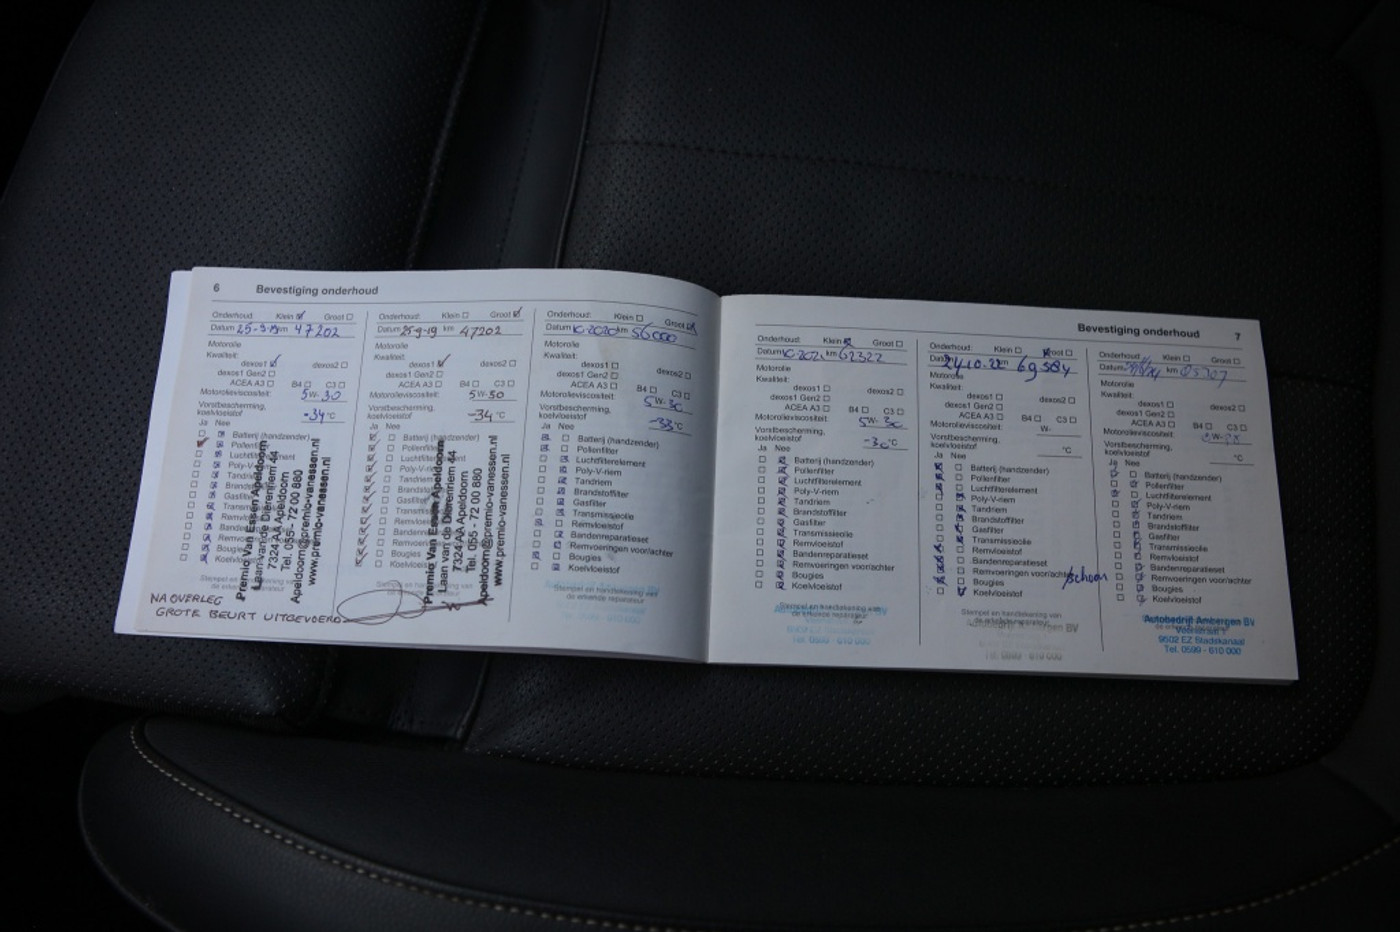 6 Bevestiging onderhoud
Onderhoud: Klein Groot
Datum 25-9-19 km 47202
Motorolie
Kwaliteit:
dexos1 dexos2
dexos1 Gen2
ACEA A3 B4 C3
Motorolieviscositeit: 5W-30
Vorstbescherming,
koelvloeistof -34 °C
Ja Nee
Batterij (handzender)
Pollenfilter
Luchtfilterelement
Poly-V-riem
Tandriem
Gasfilter
Bougies
Koelvloeistof
Premio Van Essen Apeldoorn
Laan van de Dierenriem 44
7324 AA Apeldoorn
Tel. 055 - 72 00 880
Apeldoorn@premio-vanessen.nl
www.premio-vanessen.nl
NA OVERLEG
GROTE BEURT UITGEVOERD
Onderhoud: Klein Groot
Datum 25-9-19 km 47202
Motorolie
Kwaliteit:
dexos1 dexos2
dexos1 Gen2
ACEA A3 B4 C3
Motorolieviscositeit: 5W-30
Vorstbescherming,
koelvloeistof -34 °C
Ja Nee
Batterij (handzender)
Pollenfilter
Luchtfilterelement
Poly-V-riem
Tandriem
Gasfilter
Bougies
Koelvloeistof
Premio Van Essen Apeldoorn
Laan van de Dierenriem 44
7324 AA Apeldoorn
Tel. 055 - 72 00 880
Apeldoorn@premio-vanessen.nl
www.premio-vanessen.nl
Onderhoud: Klein Groot
Datum 10-2020 km 56000
Motorolie
Kwaliteit:
dexos1 dexos2
dexos1 Gen2
ACEA A3 B4 C3
Motorolieviscositeit: 5W-30
Vorstbescherming,
koelvloeistof -33 °C
Ja Nee
Batterij (handzender)
Pollenfilter
Luchtfilterelement
Poly-V-riem
Tandriem
Brandstoffilter
Gasfilter
Transmissieolie
Remvloeistof
Bandenreparatieset
Remvoeringen voor/achter
Bougies
Koelvloeistof
Stempel en handtekening van
de erkende reparateur
Bevestiging onderhoud 7
Onderhoud: Klein Groot
Datum 10-2021 km 62322
Motorolie
Kwaliteit:
dexos1 dexos2
dexos1 Gen2
ACEA A3 B4 C3
Motorolieviscositeit: 5W-30
Vorstbescherming,
koelvloeistof -30 °C
Ja Nee
Batterij (handzender)
Pollenfilter
Luchtfilterelement
Poly-V-riem
Tandriem
Brandstoffilter
Gasfilter
Transmissieolie
Remvloeistof
Bandenreparatieset
Remvoeringen voor/achter
Bougies
Koelvloeistof
Stempel en handtekening van
de erkende reparateur
Tel. 0599 - 610 000
Onderhoud: Klein Groot
Datum 24-10-22 km 69584
Motorolie
Kwaliteit:
dexos1 dexos2
dexos1 Gen2
ACEA A3 B4 C3
Motorolieviscositeit: W-
Vorstbescherming,
koelvloeistof °C
Ja Nee
Batterij (handzender)
Pollenfilter
Luchtfilterelement
Poly-V-riem
Tandriem
Brandstoffilter
Gasfilter
Transmissieolie
Remvloeistof
Bandenreparatieset
Remvoeringen voor/achter /schoon
Bougies
Koelvloeistof
Stempel en handtekening van
de erkende reparateur
Tel. 0599 - 610 000
Onderhoud: Klein Groot
Datum km
Motorolie
Kwaliteit:
dexos1 dexos2
dexos1 Gen2
ACEA A3 B4 C3
Motorolieviscositeit: W-
Vorstbescherming,
koelvloeistof °C
Ja Nee
Batterij (handzender)
Pollenfilter
Luchtfilterelement
Poly-V-riem
Tandriem
Brandstoffilter
Gasfilter
Transmissieolie
Remvloeistof
Bandenreparatieset
Remvoeringen voor/achter
Bougies
Koelvloeistof
Autobedrijf Ambergen BV
9502 EZ Stadskanaal
Tel. 0599 - 610 000